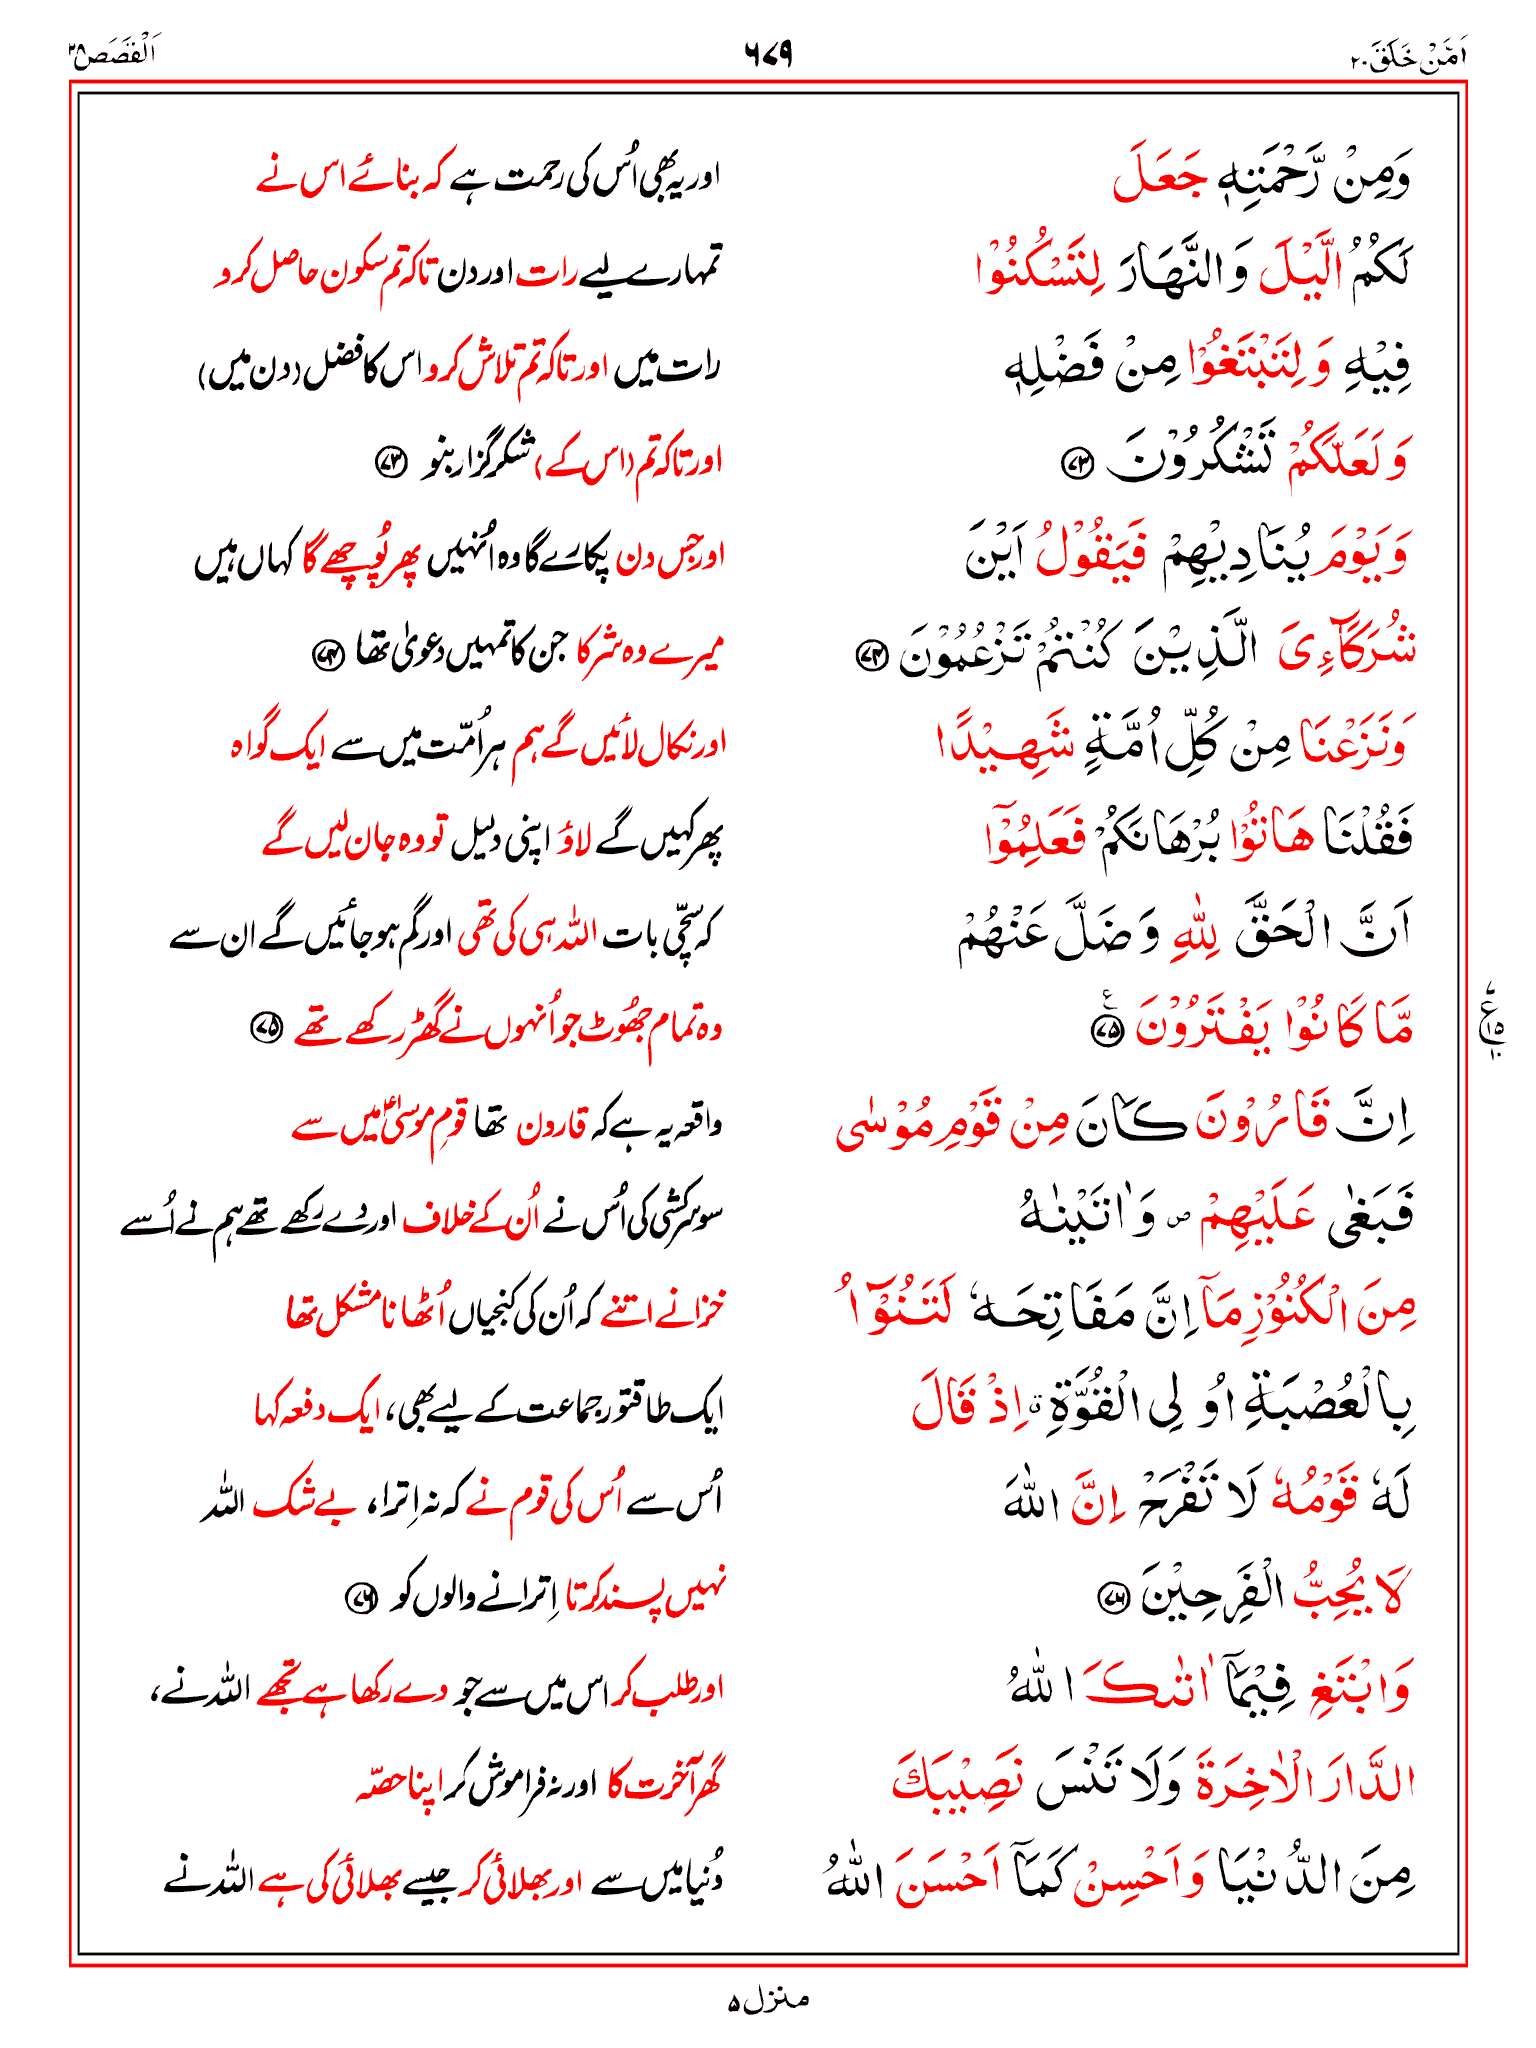 اَمَّنْ خَلَقَ ۲۰
۶۷۹
اَلْقَصَص ۲۸
وَمِنْ رَّحْمَتِهٖ جَعَلَ
اور یہ بھی اُس کی رحمت ہے کہ بنائے اس نے
لَكُمُ الَّيْلَ وَالنَّهَارَ لِتَسْكُنُوْا
تمہارے لیے رات اور دن تاکہ تم سکون حاصل کرو
فِيْهِ وَلِتَبْتَغُوْا مِنْ فَضْلِهٖ
رات میں اور تاکہ تم تلاش کرو اس کا فضل (دن میں)
وَلَعَلَّكُمْ تَشْكُرُوْنَ ﴿۷۳﴾
اور تاکہ تم (اس کے) شکر گزار بنو ﴿۷۳﴾
وَيَوْمَ يُنَادِيْهِمْ فَيَقُوْلُ اَيْنَ
اور جس دن پکارے گا وہ اُنہیں پھر پُوچھے گا کہاں ہیں
شُرَكَآءِیَ الَّذِيْنَ كُنْتُمْ تَزْعُمُوْنَ ﴿۷۴﴾
میرے وہ شرکا جن کا تمہیں دعویٰ تھا ﴿۷۴﴾
وَنَزَعْنَا مِنْ كُلِّ اُمَّةٍ شَهِيْدًا
اور نکال لائیں گے ہم ہر اُمّت میں سے ایک گواہ
فَقُلْنَا هَاتُوْا بُرْهَانَكُمْ فَعَلِمُوْٓا
پھر کہیں گے لاؤ اپنی دلیل تو وہ جان لیں گے
اَنَّ الْحَقَّ لِلّٰهِ وَضَلَّ عَنْهُمْ
کہ سچّی بات اللہ ہی کی تھی اور گم ہو جائیں گے ان سے
مَّا كَانُوْا يَفْتَرُوْنَ ﴿۷۵﴾ ع
وہ تمام جھُوٹ جو اُنہوں نے گھڑ رکھے تھے ﴿۷۵﴾
۷ ع ۱۵ ۱۰
اِنَّ قَارُوْنَ كَانَ مِنْ قَوْمِ مُوْسٰى
واقعہ یہ ہے کہ قارون تھا قومِ موسیٰؑ میں سے
فَبَغٰى عَلَيْهِمْ ۖ وَاٰتَيْنٰهُ
سو سرکشی کی اُس نے اُن کے خلاف اور دے رکھے تھے ہم نے اُسے
مِنَ الْكُنُوْزِ مَآ اِنَّ مَفَاتِحَهٗ لَتَنُوْٓاُ
خزانے اتنے کہ اُن کی کنجیاں اُٹھانا مشکل تھا
بِالْعُصْبَةِ اُولِى الْقُوَّةِ ۗ اِذْ قَالَ
ایک طاقتور جماعت کے لیے بھی، ایک دفعہ کہا
لَهٗ قَوْمُهٗ لَا تَفْرَحْ اِنَّ اللّٰهَ
اُس سے اُس کی قوم نے کہ نہ اِترا، بے شک اللہ
لَا يُحِبُّ الْفَرِحِيْنَ ﴿۷۶﴾
نہیں پسند کرتا اِترانے والوں کو ﴿۷۶﴾
وَابْتَغِ فِيْمَآ اٰتٰىكَ اللّٰهُ
اور طلب کر اس میں سے جو دے رکھا ہے تجھے اللہ نے،
الدَّارَ الْاٰخِرَةَ وَلَا تَنْسَ نَصِيْبَكَ
گھر آخرت کا اور نہ فراموش کر اپنا حصّہ
مِنَ الدُّنْيَا وَاَحْسِنْ كَمَآ اَحْسَنَ اللّٰهُ
دُنیا میں سے اور بھلائی کر جیسے بھلائی کی ہے اللہ نے
منزل ۵